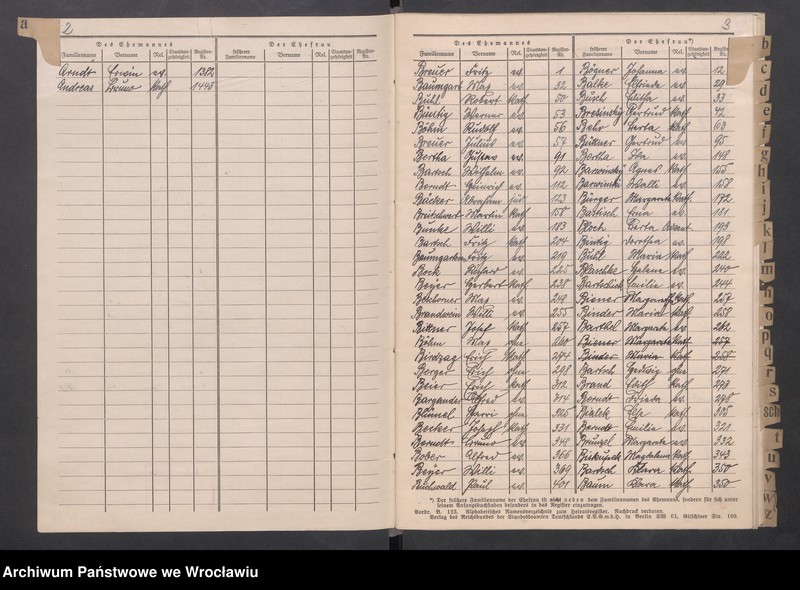 a
2
Des Ehemannes Der Ehefrau
Familienname Vorname Rel. Staatsan-gehörigkeit Register-Nr. früherer Familienname Vorname Rel. Staatsan-gehörigkeit Register-Nr.
Arndt Erwin ev. 1302
Andreas Bruno kath 1443
3
Des Ehemannes Der Ehefrau*)
Familienname Vorname Rel. Staatsan-gehörigkeit Register-Nr. früherer Familienname Vorname Rel. Staatsan-gehörigkeit Register-Nr.
Breuer Fritz ev. 1 Bögner Johanna ev. 12
Baumgart Max ev. 32 Bälke Elfriede ev. 29
Buhl Robert kath 50 Busch Editha ev. 33
Büntig Werner ev. 53 Bresinsky Gertrud kath 42
Böhm Rudolf ev. 56 Behr Herta kath 63
Breuer Julius ev. 57 Büttner Gertrud ev. 95
Bertha Gustav ev. 91 Bertha Ida ev. 148
Bartsch Wilhelm ev. 92 Barwinsky Agnes kath 155
Berndt Heinrich ev. 112 Barwinski Walli ev. 158
Bäcker Abraham jüd 123 Bürger Margarete kath. 172
Breitschwert Martin kath 150 Bartisch Erna ev. 181
Bunke Willi ev. 183 Bloch Herta 193
Bartsch Fritz kath 204 Bintig Dorothea ev. 198
Baumgarten Fritz ev. 219 Buhl Maria kath 222
Bock Richard ev. 225 Blaschke Helene ev. 240
Beyer Herbert kath 238 Bartschick Emilie ev. 244
Beschorner Max ev. 248 Biener Margareth kath. 257
Brandwein Willi ev. 255 Binder Maria kath 258
Bittner Josef kath 257 Barthel Margarete ev. 262
Böhm Max ohne 260 Biener Margarete kath. 257
Birdzag Erich kath 274 Binder Maria kath 258
Berger Erich ohne 298 Bartsch Hedwig ohne 271
Beier Erich kath 312 Brand Edith kath 293
Bargander Alfred ev. 314 Berndt Frieda ev. 298
Blümel Harri ohne 325 Bialek Else kath 315
Becker Josef kath 331 Berndt Emilie ev. 321
Berndt Bruno ev. 348 Brünzel Margarete ev. 332
Bober Alfred ev. 366 Biskupek Magdalena kath 343
Beyer Willi ev. 369 Bartsch Klara kath. 350
Buchwald Paul ev. 401 Baum Klara kath 350
*) Der frühere Familienname der Ehefrau ist nicht neben dem Familiennamen des Ehemanns, sondern für sich unter
seinem Anfangsbuchstaben besonders in das Register einzutragen.
Vordr. B. 123. Alphabetisches Namensverzeichnis zum Heiratsregister. Nachdruck verboten.
Verlag des Reichsbundes der Standesbeamten Deutschlands E.V.G.m.b.H. in Berlin SW 61, Gitschiner Str. 109.
b
c
d
e
f
g
h
i
j
k
l
m
n
o
p
q
r
s
sch
t
u
v
w
z
Archiwum Państwowe we Wrocławiu